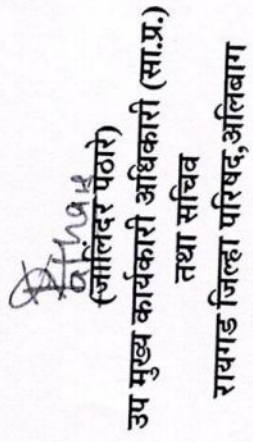 (जालिंदर पठारे)
उप मुख्य कार्यकारी अधिकारी (सा.प्र.)
तथा सचिव
रायगड जिल्हा परिषद,अलिबाग